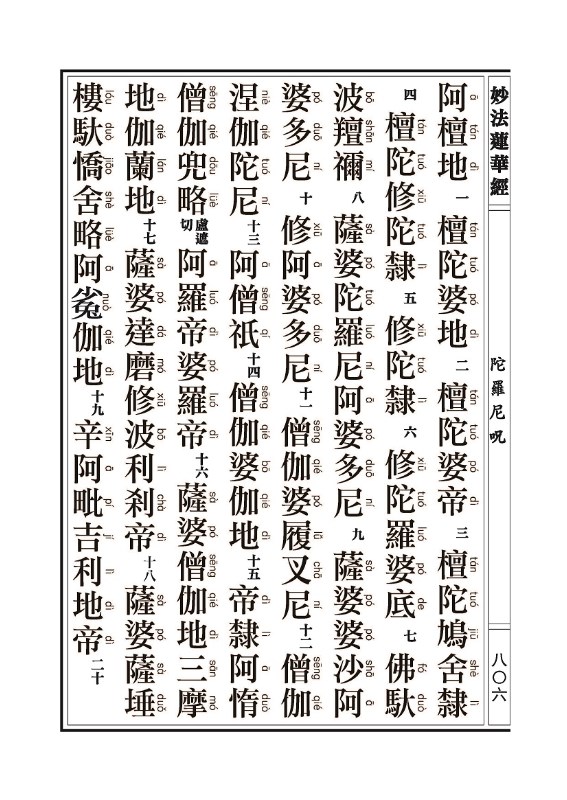 妙法蓮華經
陀羅尼呪
八〇六
阿檀地 一 檀陀婆地 二 檀陀婆帝 三 檀陀鳩舍隸
四 檀陀修陀隸 五 修陀隸 六 修陀羅婆底 七 佛馱
波羶禰 八 薩婆陀羅尼阿婆多尼 九 薩婆婆沙阿
婆多尼 十 修阿婆多尼 十一 僧伽婆履叉尼 十二 僧伽
涅伽陀尼 十三 阿僧祇 十四 僧伽婆伽地 十五 帝隸阿惰
僧伽兜略 盧遮切 阿羅帝婆羅帝 十六 薩婆僧伽地三摩
地伽蘭地 十七 薩婆達磨修波利剎帝 十八 薩婆薩埵
樓馱憍舍略阿㝹伽地 十九 辛阿毗吉利地帝 二十